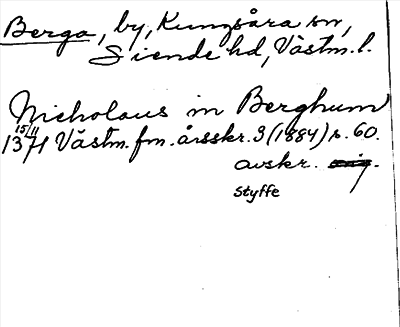 Berga, by, Kungsåra sn,
Siende hd, Västm. l.
Nicholaus in Berghum
15/11
1371 Västm. fm. årsskr. 3 (1884) s. 60.
avskr. orig.
Styffe